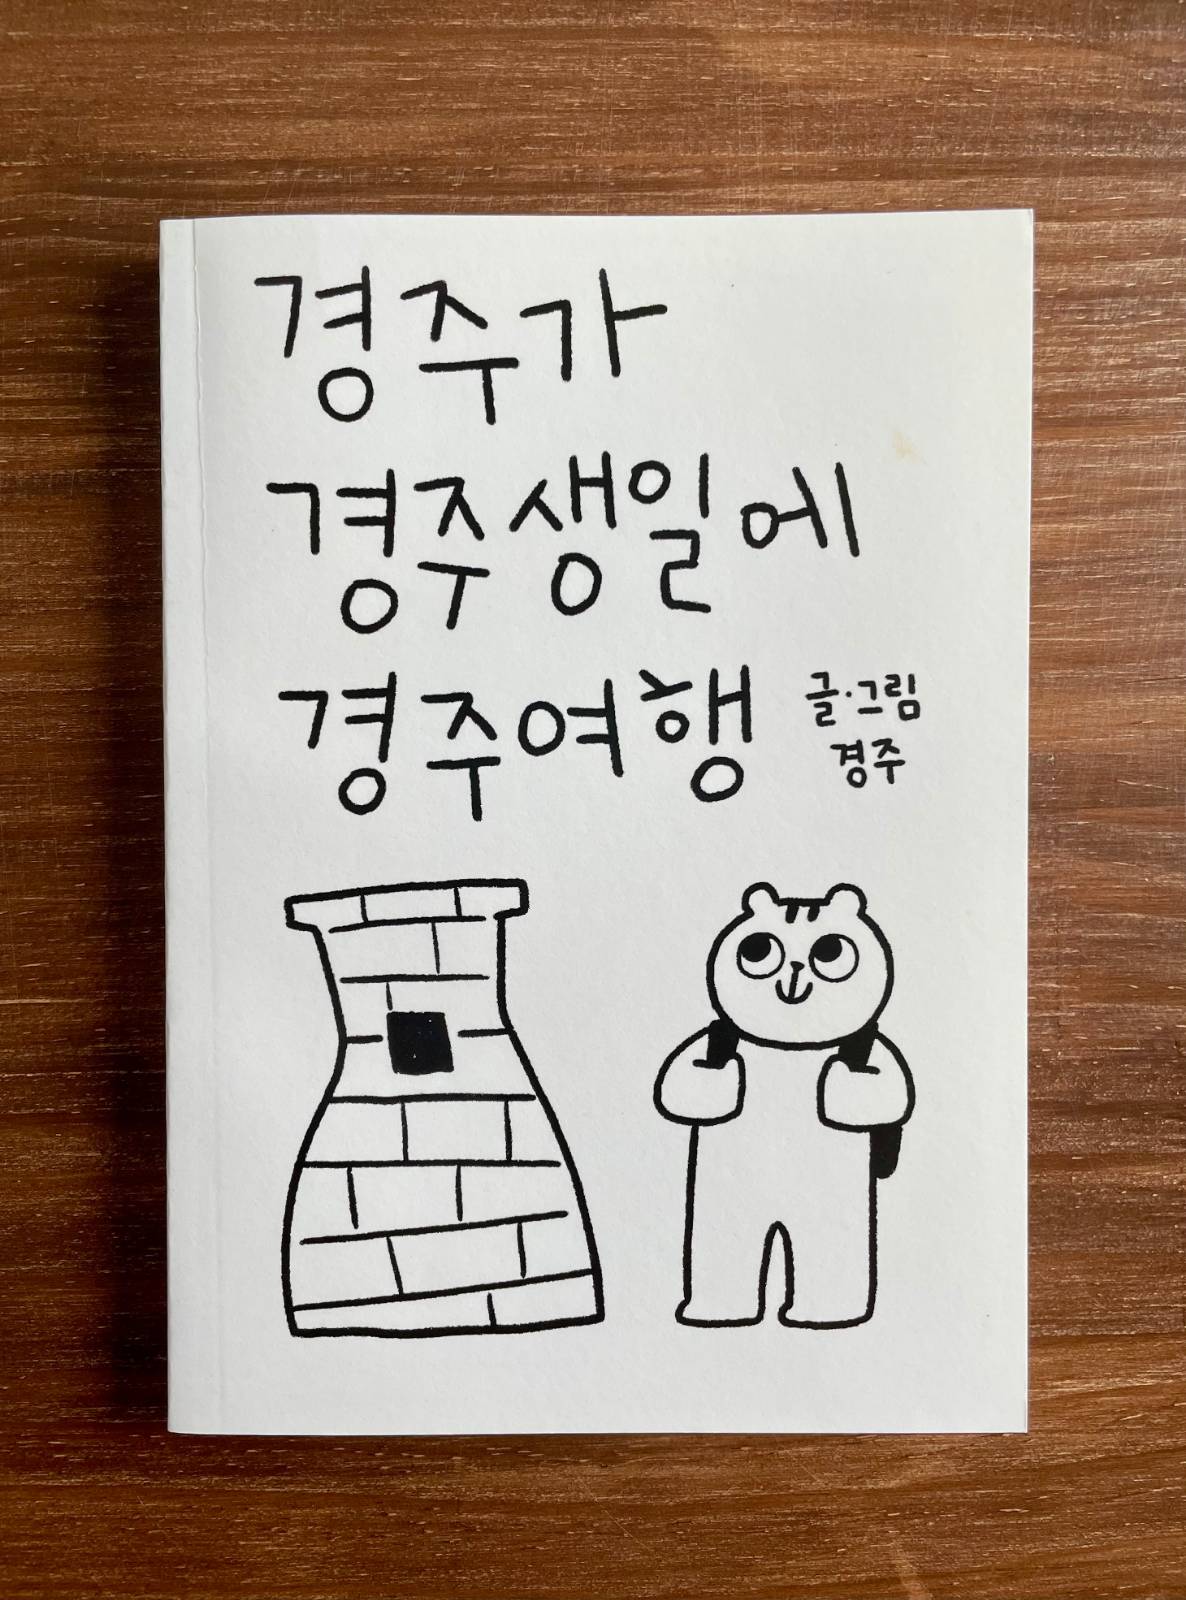 경주가
경주생일에
경주여행
글·그림
경주